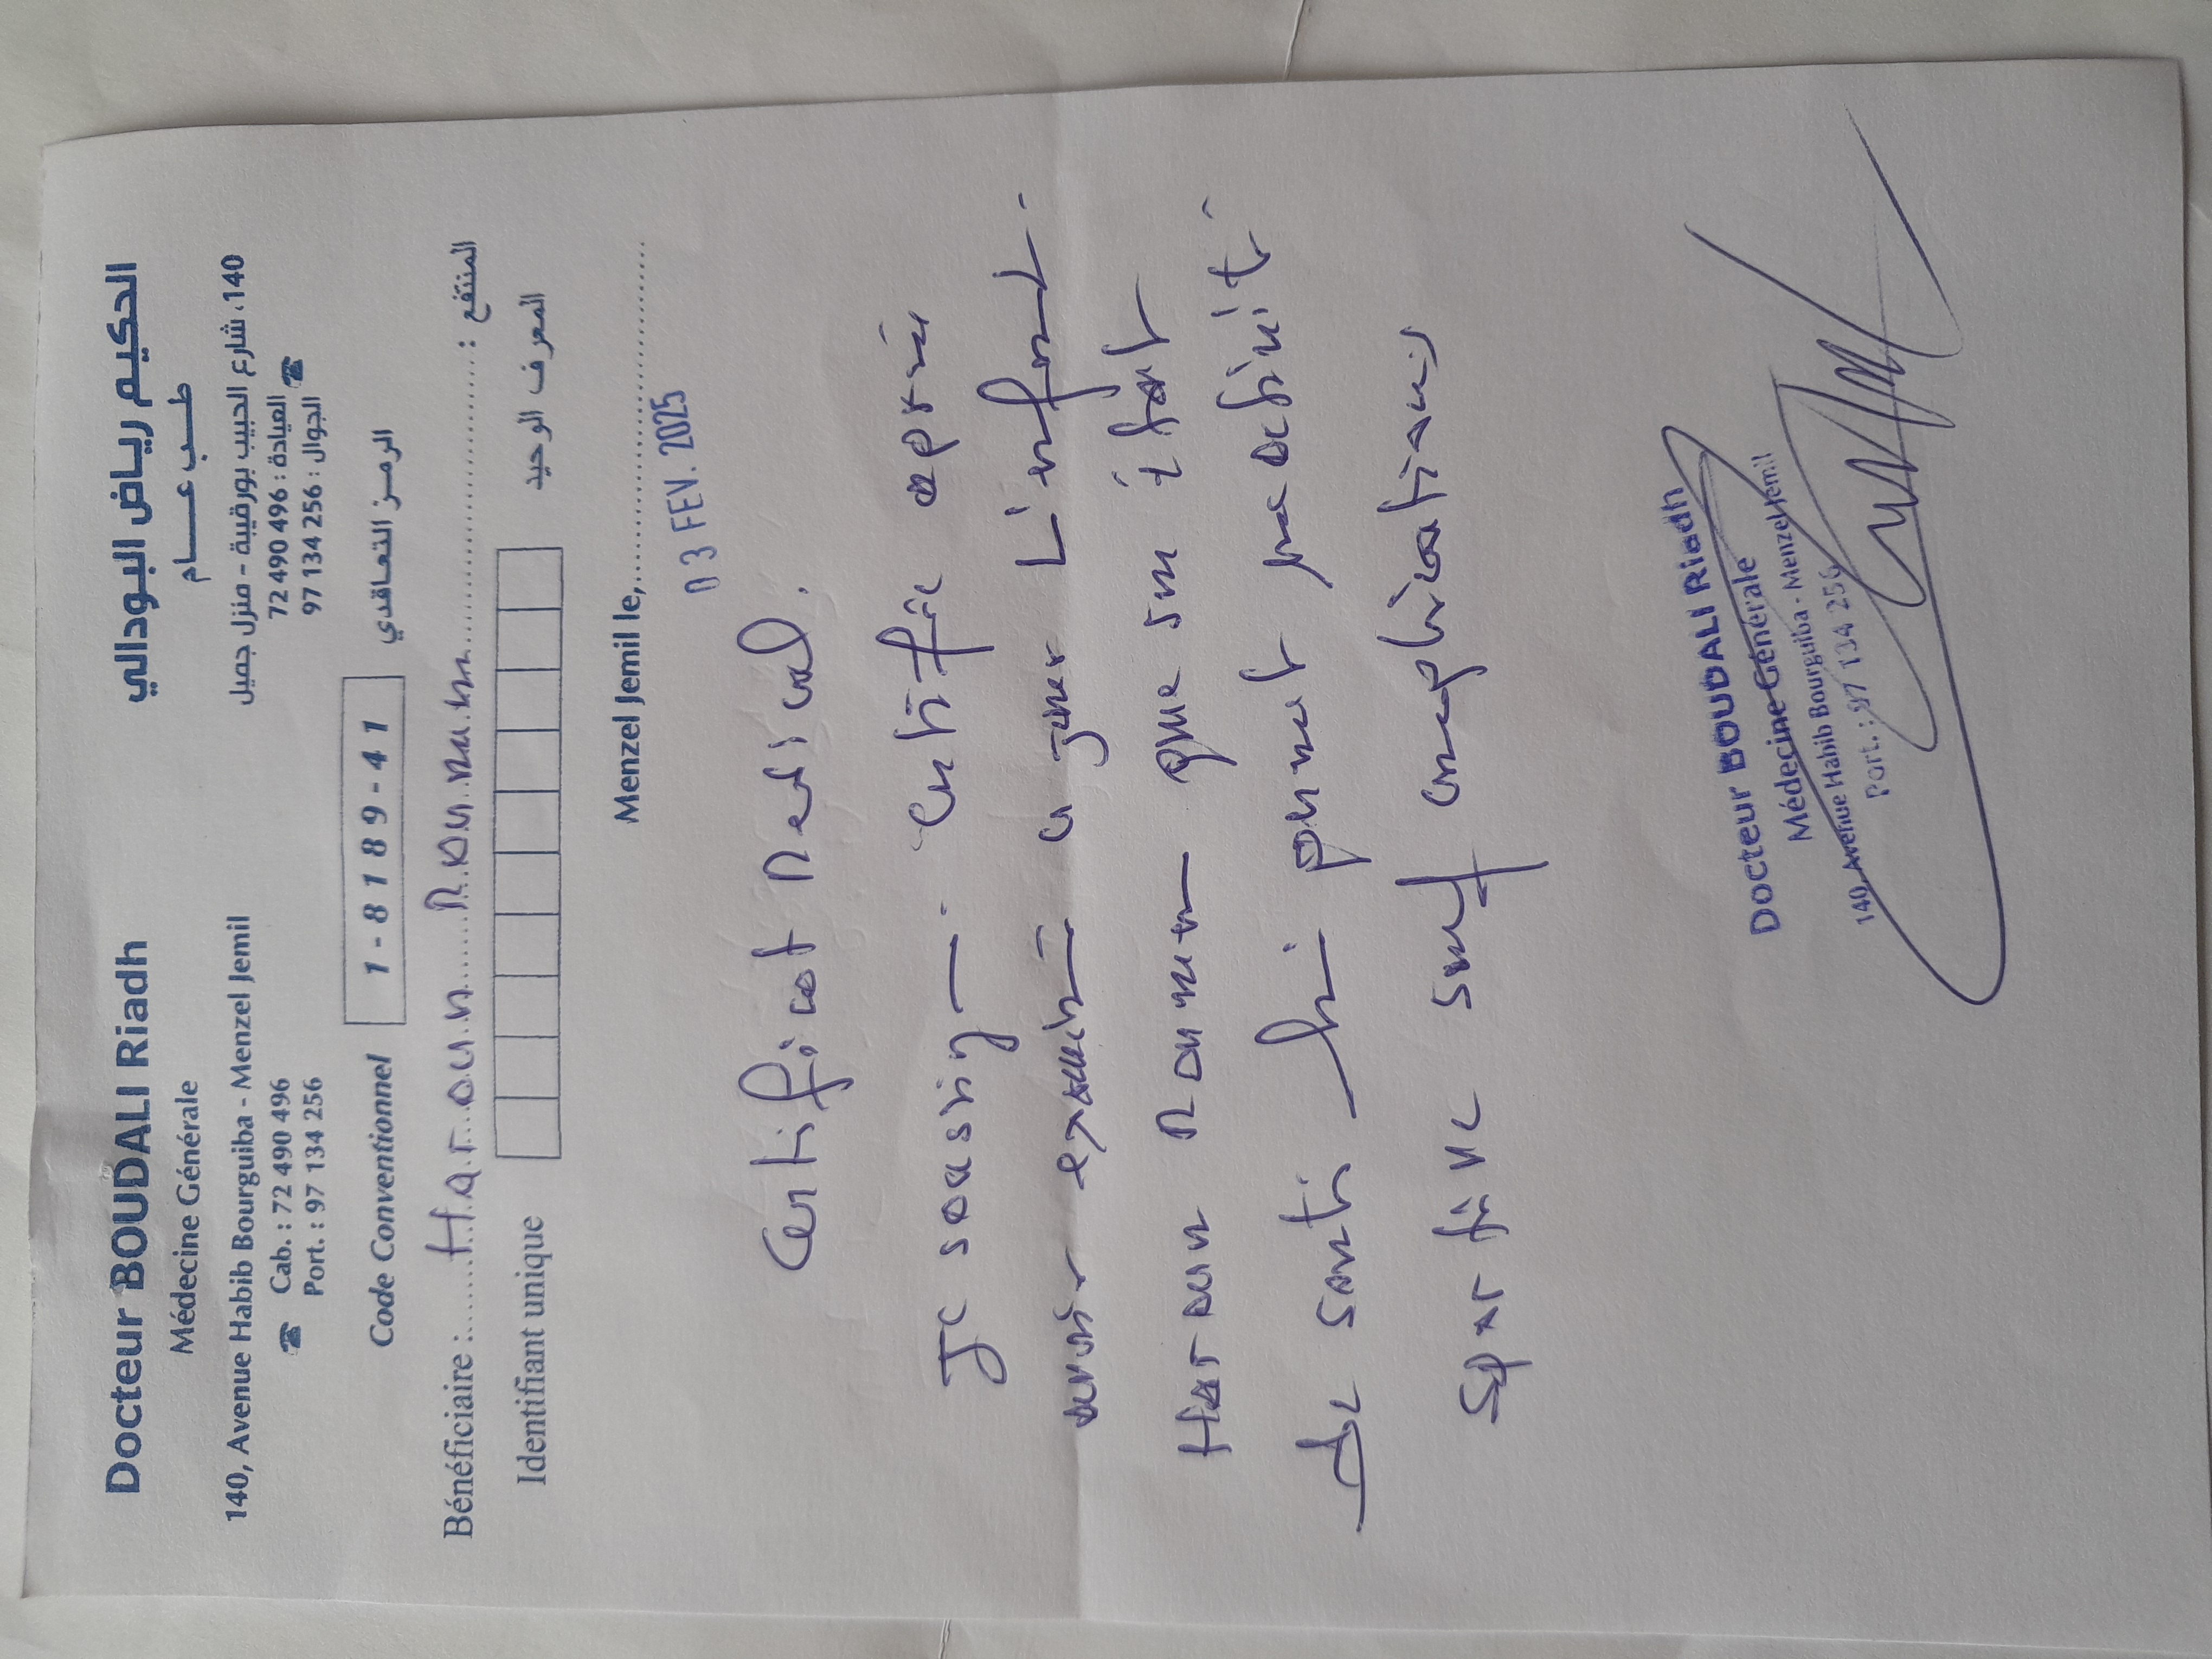 Docteur BOUDALI Riadh
Médecine Générale
140, Avenue Habib Bourguiba - Menzel Jemil
☎ Cab. : 72 490 496
Port. : 97 134 256
الحكيم رياض البودالي
طــب عــــام
140، شارع الحبيب بورقيبة - منزل جميل
العيادة : 496 490 72 ☎
الجوال : 256 134 97
Code Conventionnel 1 - 8 1 8 9 - 4 1 الرمـز التعـاقدي
Bénéficiaire : Haroun المنتفع :
Identifiant unique المعرف الوحيد
Menzel Jemil le,
03 FEV. 2025
Certificat Medical.
Je soussig. certifie après
avoir examiné ce jour L'enfant.
Haroun que son état
de santé lui permet
sportive sauf complications
Docteur BOUDALI Riadh
Médecine Générale
140, Avenue Habib Bourguiba - Menzel Jemil
Port. : 97 134 256